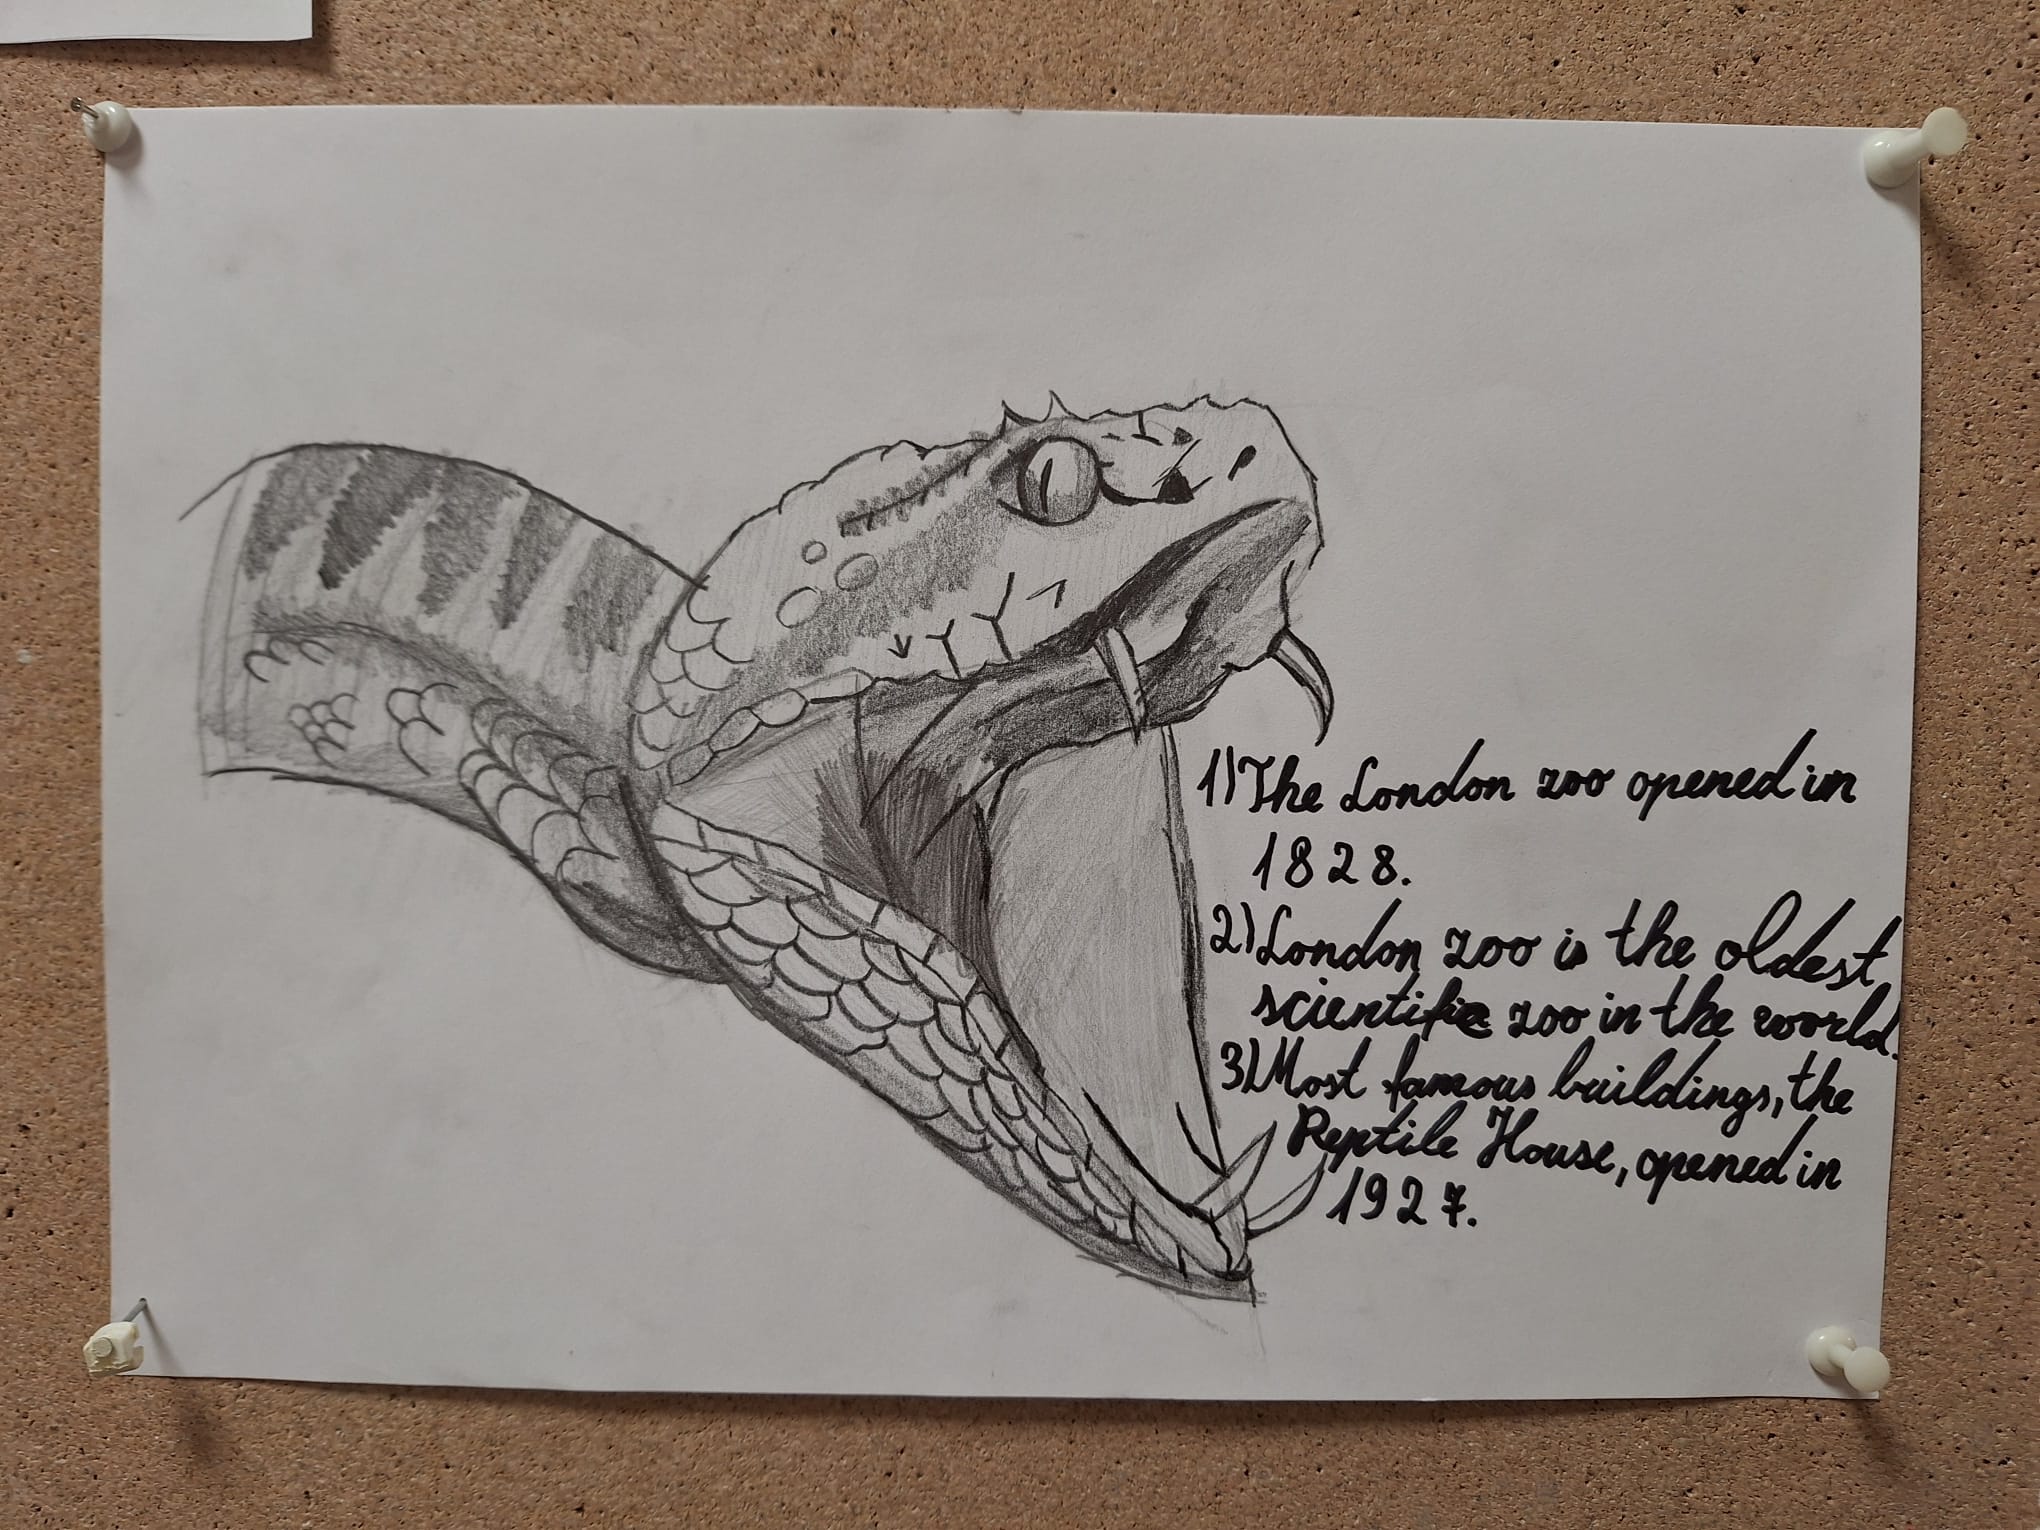 1) The London zoo opened in
1828.
2) London zoo is the oldest
scientific zoo in the world.
3) Most famous buildings, the
Reptile House, opened in
1927.